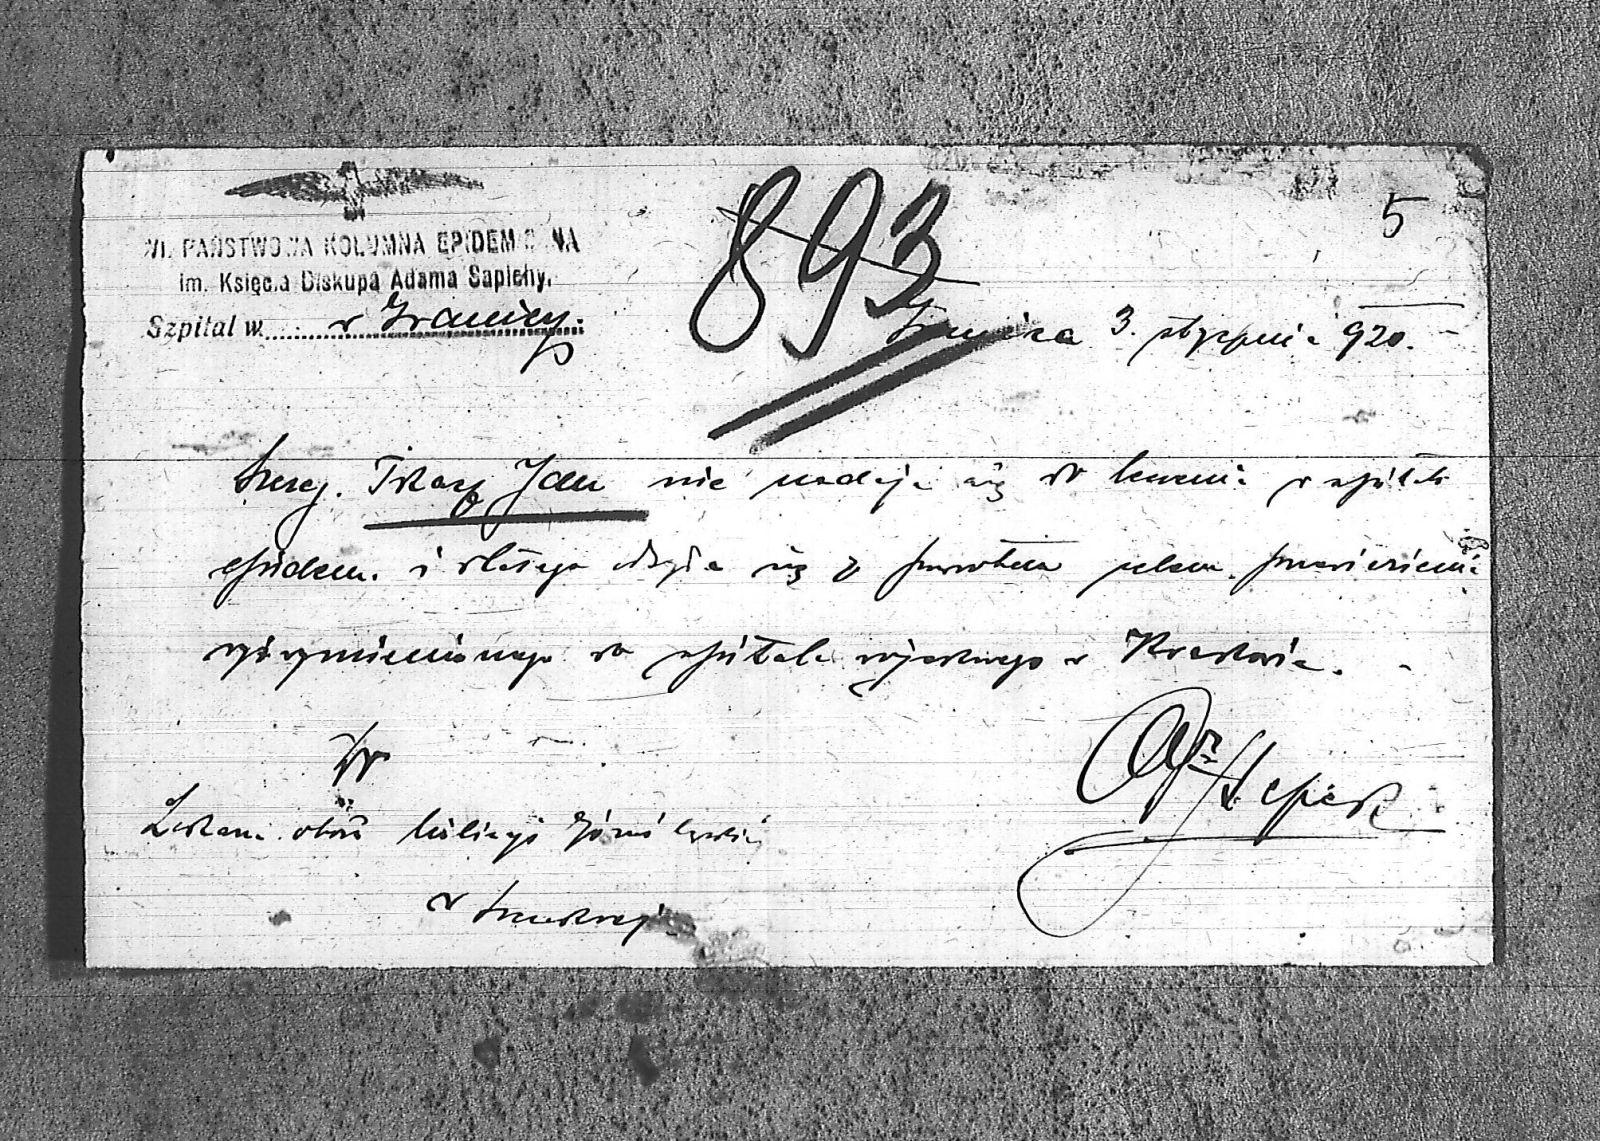 893
5
VI. PAŃSTWOWA KOLUMNA EPIDEMICZNA
im. Księcia Biskupa Adama Sapiehy.
Szpital w w Granicy.
Granica 3. stycznia 920.
Szereg. Tkacz Jan nie nadaje się do leczenia w szpitalu
epidem. i dlatego odsyła się z powrotem celem przewiezienia
wyżwymienionego do szpitala wojskowego w Krakowie.
Lekarz obozu
w